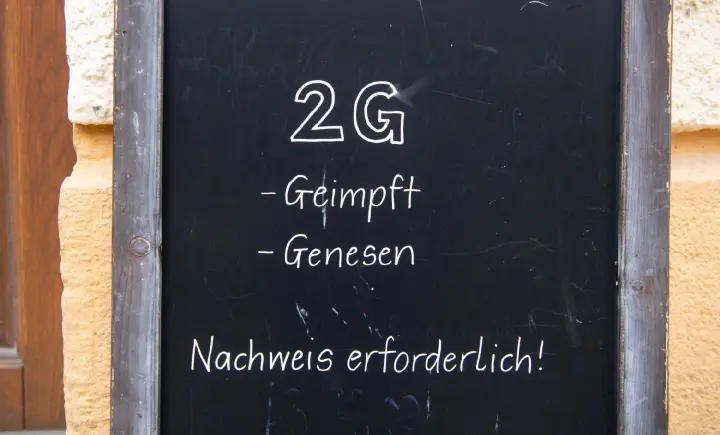 2G
- Geimpft
- Genesen
Nachweis erforderlich!